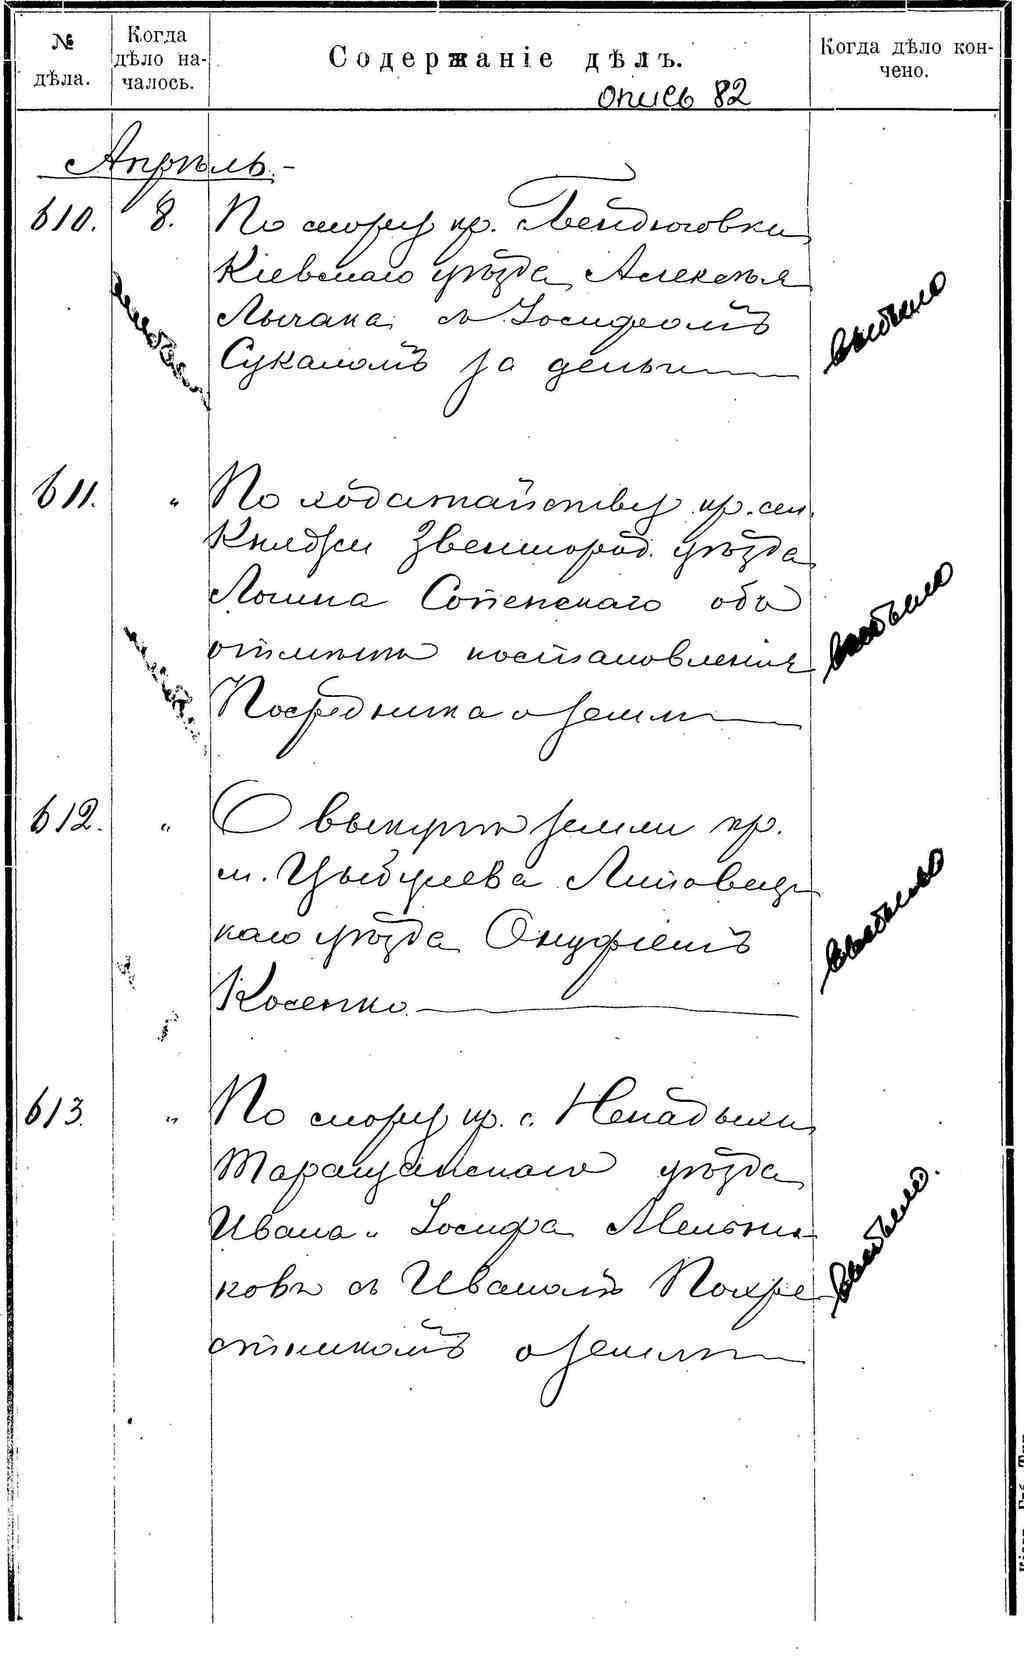 № дѣла.
Когда дѣло на-
чалось.
Содержаніе дѣлъ.
Когда дѣло кон-
чено.
опись 82
Апрѣль.
610. 8. По спору кр. Бендюговки
Кіевскаго уѣзда, Алексѣя
Лычака, съ Іосифомъ
Сукаломъ за деньги
выбыло
611. " По ходатайству кр. сел.
Княжьи Звенигород. уѣзда
Логина Сопенскаго объ
отмѣнѣ постановленія
Посредника о землѣ
выбыло
612. " О выкупѣ земли кр.
м. Цыбулева Липовец-
каго уѣзда Онуфріемъ
Косенко.
выбыло
613. " По спору кр. с. Ненадыхи,
Таращанскаго уѣзда
Ивана и Іосифа Мельни-
ковъ съ Иваномъ Похре-
стникомъ о землѣ
выбыло.